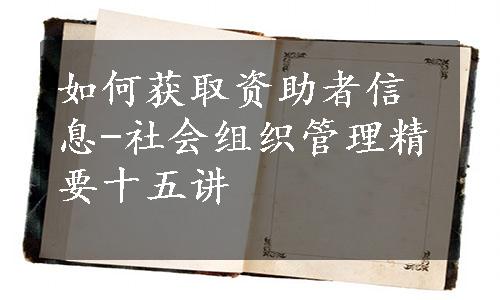 如何获取资助者信
息-社会组织管理精
要十五讲